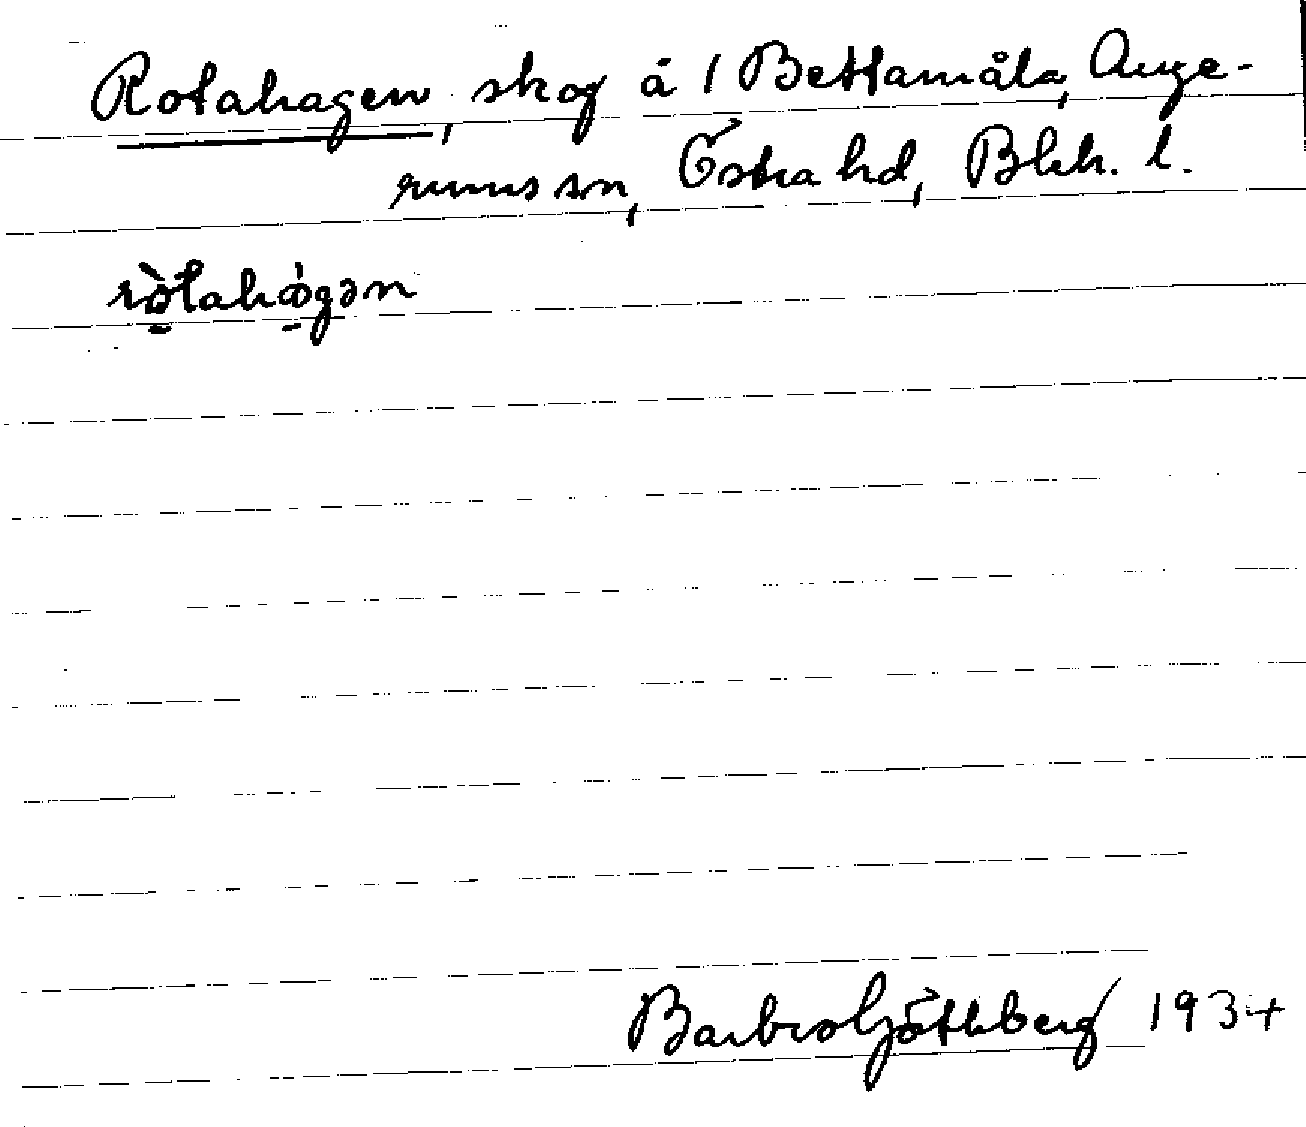 Rotahagen, skog å 1 Bettamåla, Auge-
rums sn, Östra hd, Blek. l.
rò̱tahò̱gən
Barbro Göthberg 1934